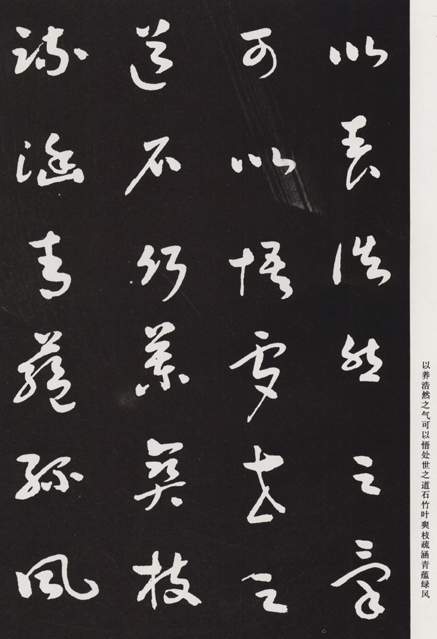 以養浩然之氣
可以悟處世之
道石竹葉爽枝
疏涵青蘊綠風
以养浩然之气可以悟处世之道石竹叶爽枝疏涵青蕴绿风